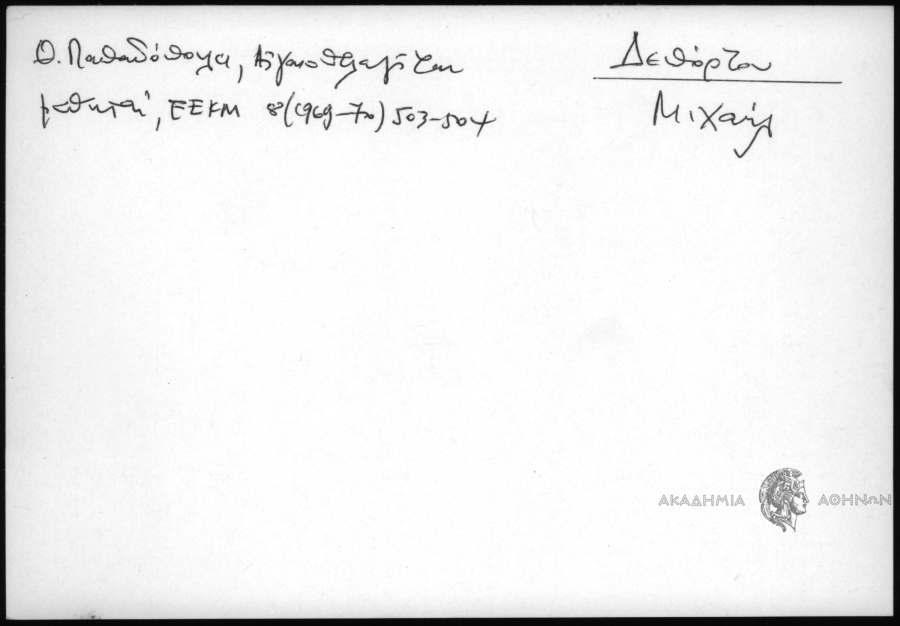 Θ. Παπαδόπουλου, Αἰγαιοπελαγῖται
μαθηταί, ΕΕΚΜ 8 (1969-70) 503-504
Δεπόρτου
Μιχαήλ
ΑΚΑΔΗΜΙΑ ΑΘΗΝΩΝ